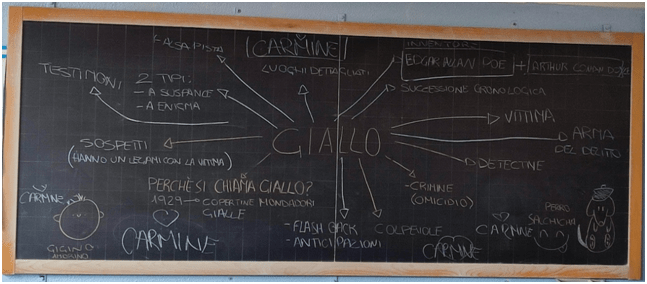 FALSA PISTA
CARMINE
INVENTORE
EDGAR ALLAN POE + ARTHUR CONAN DOYLE
LUOGHI DETTAGLIATI
TESTIMONI
2 TIPI:
- A SUSPANCE
- A ENIGMA
SUCCESSIONE CRONOLOGICA
VITTIMA
GIALLO
ARMA
DEL DELITTO
SOSPETTI
(HANNO UN LEGAMI CON LA VITTIMA)
DETECTIVE
PERCHÈ SI CHIAMA GIALLO?
1929 → COPERTINE MONDADORI
GIALLE
- CRIMINE
(OMICIDIO)
CARMINE
GIGINO
CARMINE
- FLASH BACK
- ANTICIPAZIONI
COLPEVOLE
CARMINE
CARMINE
PERRO
SALCHICHA